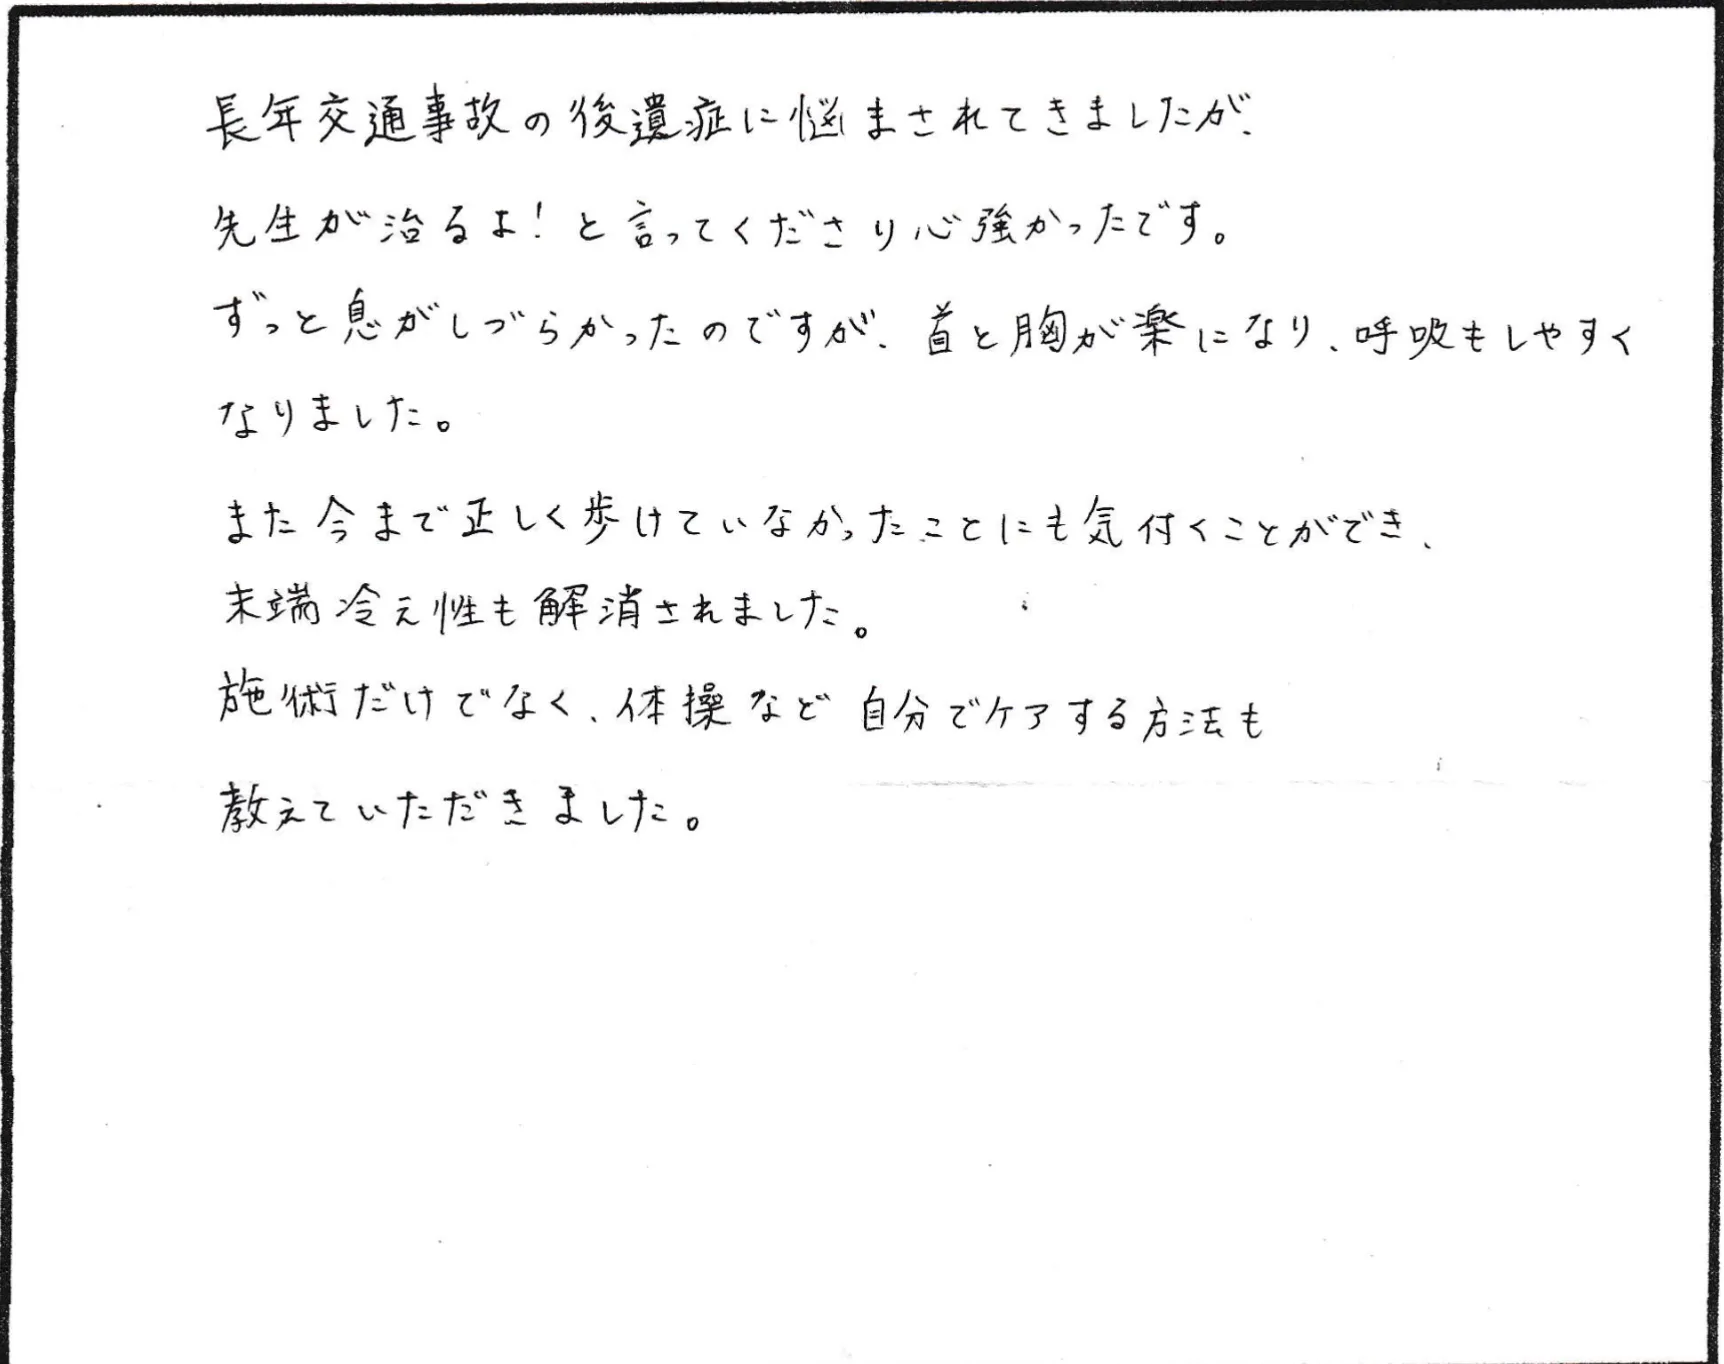 長年交通事故の後遺症に悩まされてきましたが、
先生が治るよ!と言ってくださり心強かったです。
ずっと息がしづらかったのですが、首と胸が楽になり、呼吸もしやすく
なりました。
また今まで正しく歩けていなかったことにも気付くことができ、
末端冷え性も解消されました。
施術だけでなく、体操など自分でケアする方法も
教えていただきました。